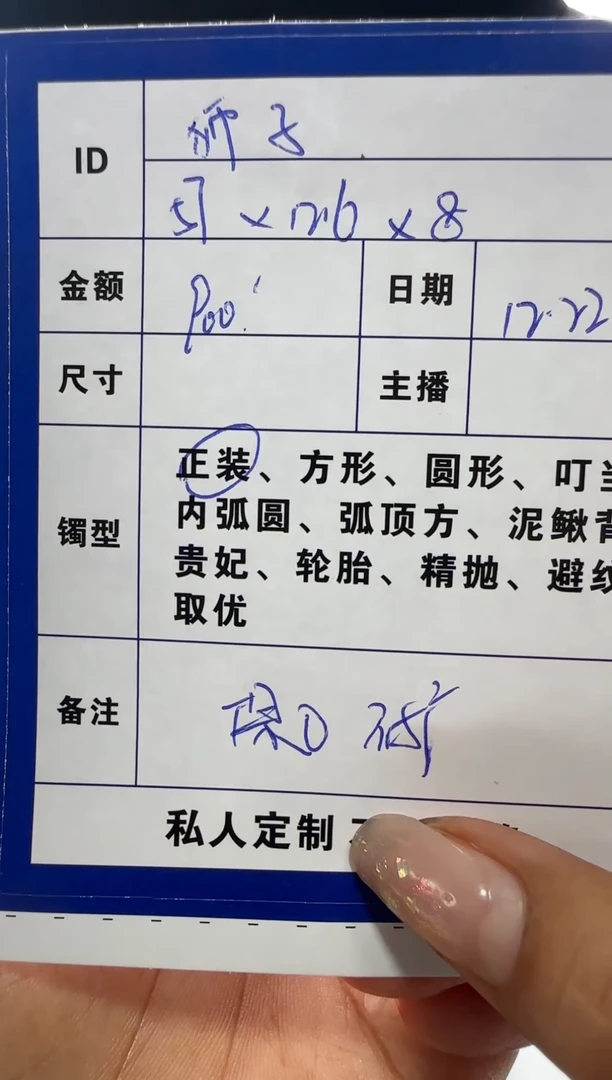 ID
狮子
57×12.6×8
金额
900
日期
12.22
尺寸
主播
镯型
正装、方形、圆形、叮当
内弧圆、弧顶方、泥鳅背
贵妃、轮胎、精抛、避纹
取优
备注
私人定制